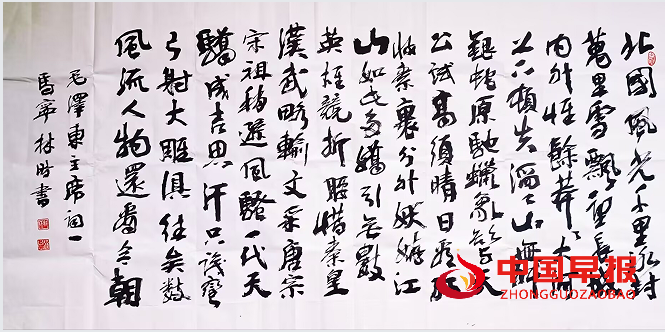 北國風光千里冰封
萬里雪飄望長城
內外惟餘莽々大河
上下頓失滔々山舞
銀蛇原馳蠟象欲與天
公試高須晴日看紅
妝素裹分外妖嬈江
山如此多嬌引無數
英雄競折腰惜秦皇
漢武略輸文采唐宗
宋祖稍遜風騷一代天
驕成吉思汗只識彎
弓射大雕俱往矣數
風流人物還看今朝
毛澤東主席詞一
寧林書
中国早报
ZHONGGUOZAOBAO